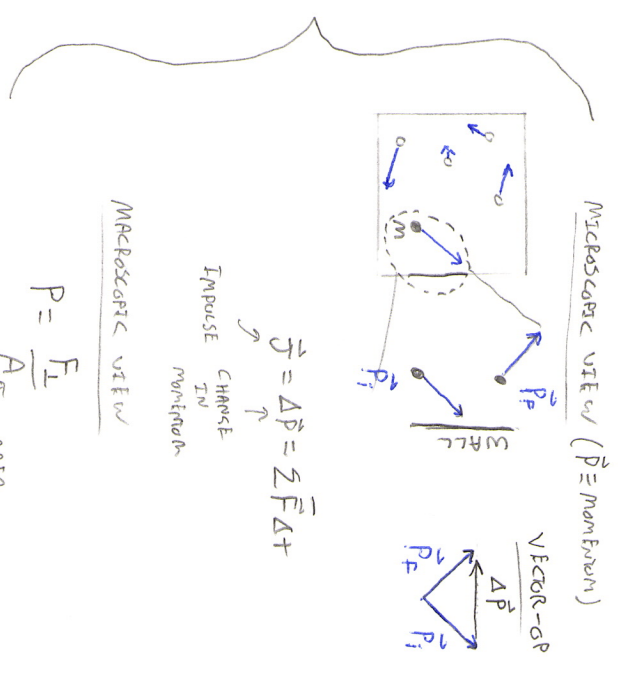 MICROSCOPIC VIEW (p⃗ = MOMENTUM)
VECTOR-OP
Δp⃗
p⃗f
p⃗i
p⃗f
p⃗i
WALL
m
J⃗ = Δp⃗ = ΣF⃗Δt
IMPULSE
CHANGE
IN
MOMENTUM
MACROSCOPIC VIEW
P = F⊥
A